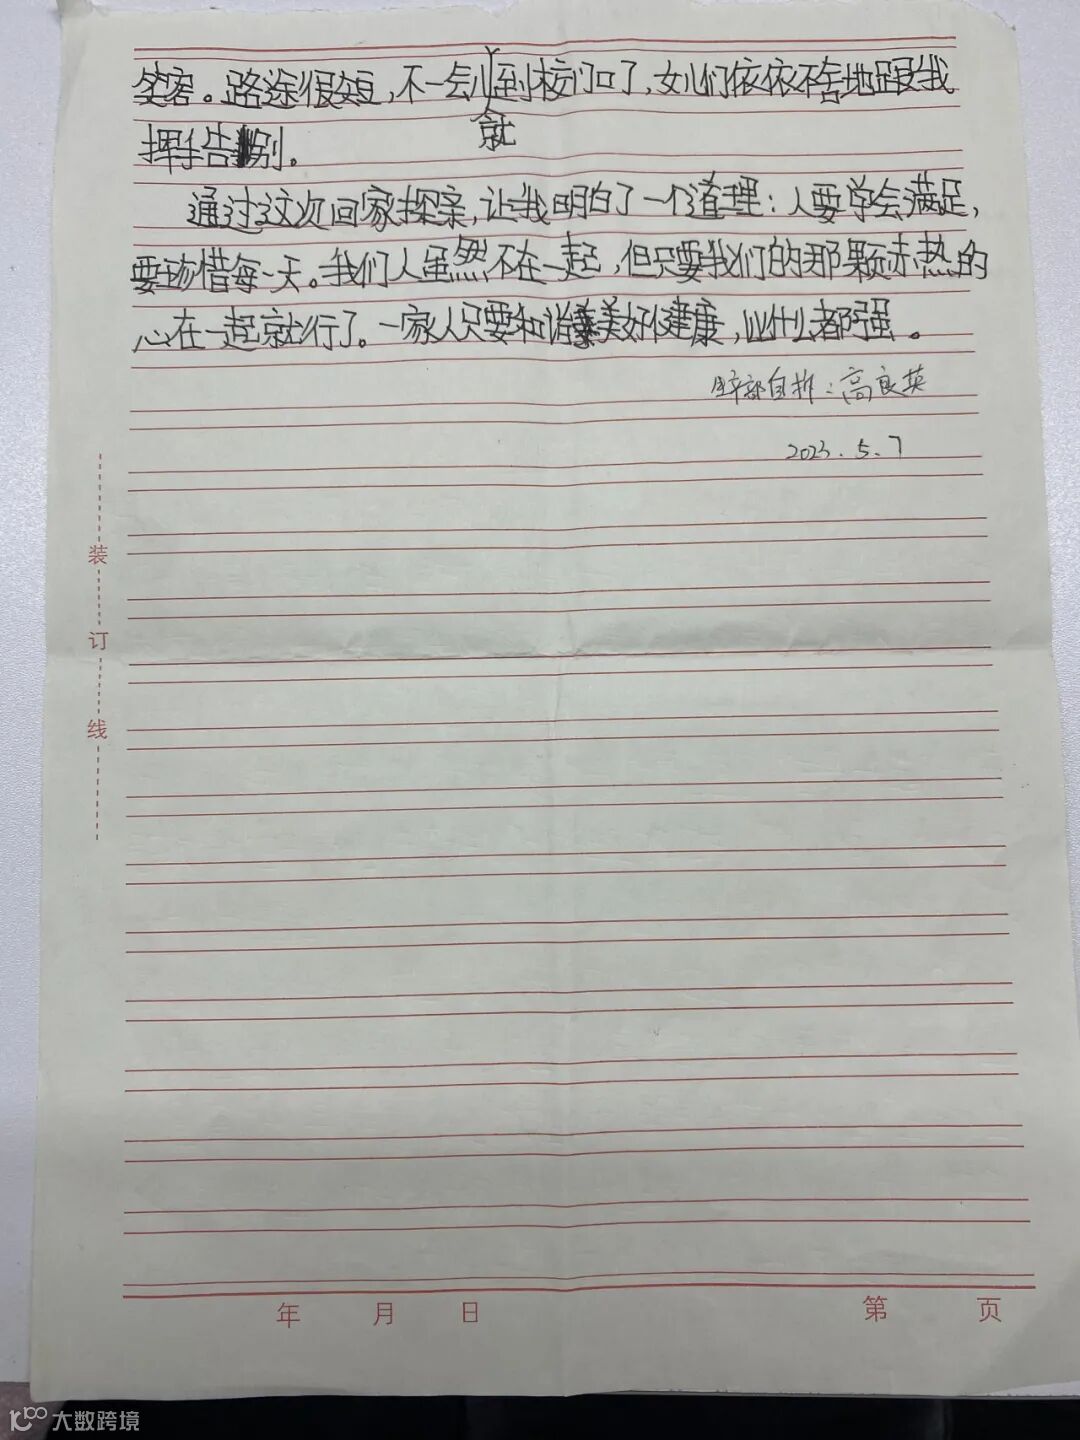 笑容。路途很短，不一会儿就到校门口了，女儿们依依不舍地跟我
挥手告别。
通过这次回家探亲，让我明白了一个道理：人要学会满足，
要珍惜每一天。我们人虽然不在一起，但只要我们的那颗赤热的
心在一起就行了。一家人只要和谐美好健康，比什么都强。
部自拆：高良英
2023.5.7
装
订
线
年 月 日 第 页
大数跨境